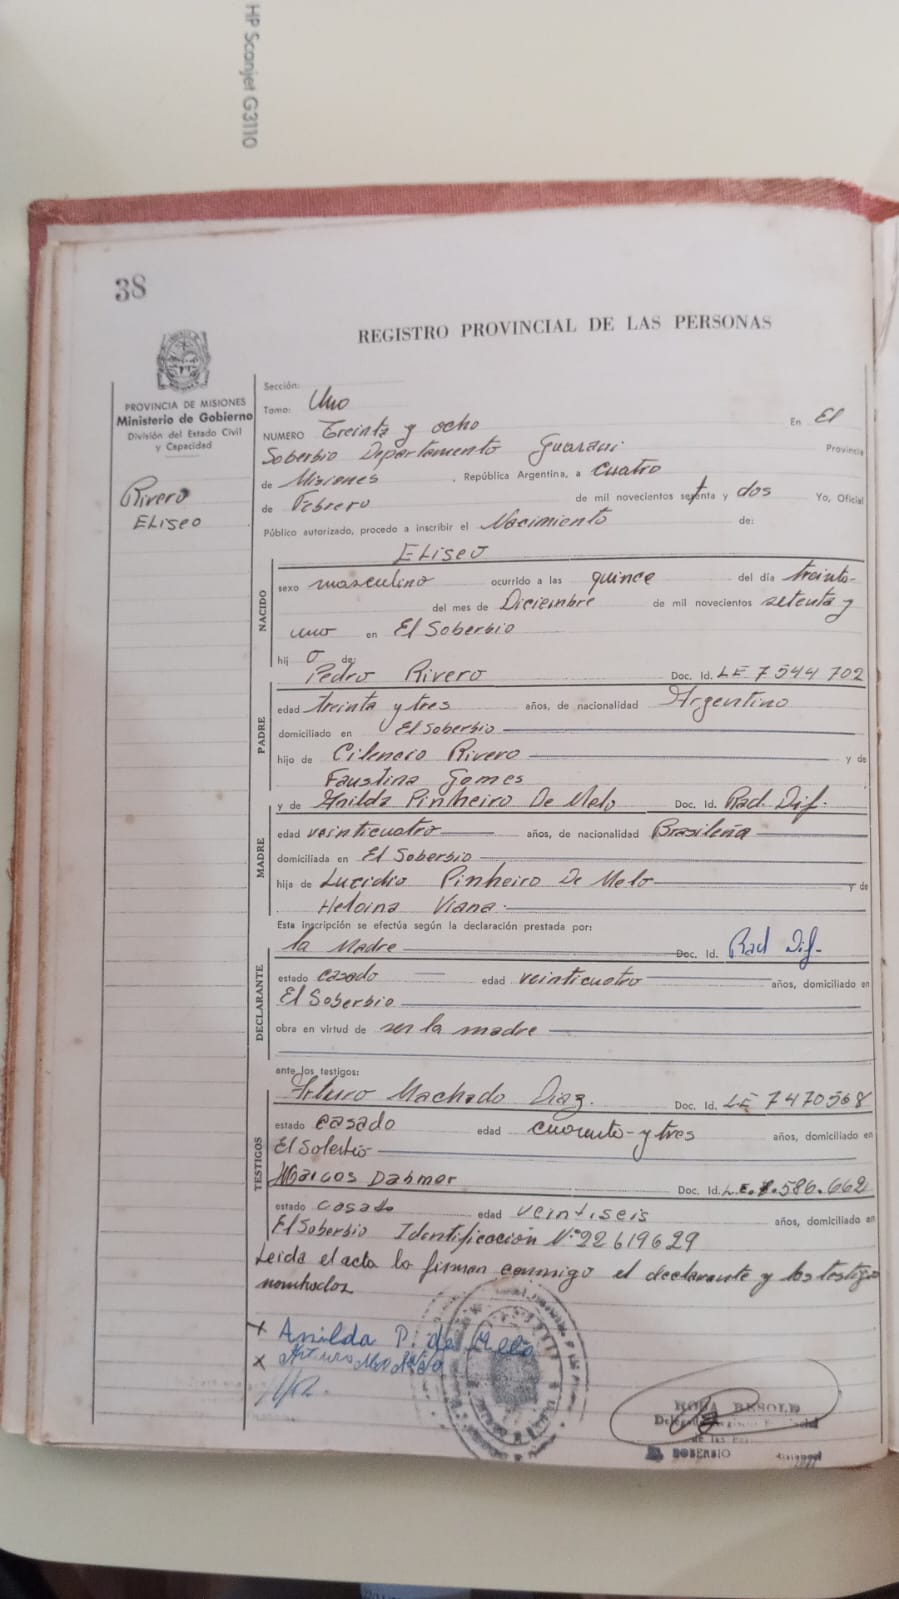 HP Scanjet G3110
38
REGISTRO PROVINCIAL DE LAS PERSONAS
PROVINCIA DE MISIONES
Ministerio de Gobierno
División del Estado Civil
y Capacidad
Rivero
ELiseo
Sección:
Tomo: Uno
NUMERO Treinta y ocho En El
Soberbio Departamento Guarani Provincia
de Misiones , República Argentina, a cuatro
de Febrero de mil novecientos setenta y dos Yo, Oficial
Público autorizado, procedo a inscribir el Nacimiento de:
ELiseo
NACIDO
sexo masculino ocurrido a las quince del día treinta-
del mes de Diciembre de mil novecientos setenta y
uno en El Soberbio
hij o de:
Pedro Rivero Doc. Id. LE 7544702
PADRE
edad treinta y tres años, de nacionalidad Argentino
domiciliado en El Soberbio
hijo de Cilencio Rivero y de
Faustina Gomes
y de Anilda Pinheiro De Melo Doc. Id. Rad. Dif.
MADRE
edad veinticuatro años, de nacionalidad Brasileña
domiciliada en El Soberbio
hija de Lucidio Pinheiro De Melo y de
Heloina Viana
Esta inscripción se efectúa según la declaración prestada por:
la Madre Doc. Id. Rad Dif-
DECLARANTE
estado casado edad veinticuatro años, domiciliado en
El Soberbio
obra en virtud de ser la madre
ante los testigos:
Arturo Machado Diaz. Doc. Id. LE 7470568
TESTIGOS
estado casado edad cuarenta-y tres años, domiciliado en
El Soberbio
Marcos Dahmer Doc. Id. L.E. 8.586.662
estado casado edad veintiseis años, domiciliado en
El Soberbio Identificación N° 22619629
Leida el acta la firman conmigo el declarante y los testigos
nombrados
x Anilda P. de Melo
x Arturo Machado
ROSA BESOLD
SOBERBIO